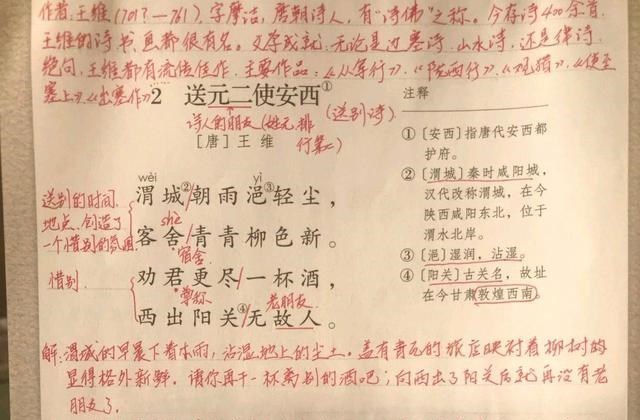 作者:王维(701?—761),字摩诘,唐朝诗人,有"诗佛"之称。今存诗400余首,
王维的诗书画都很有名。文学成就:无论是边塞诗、山水诗,还是律诗、
绝句,王维都有流传佳作。主要作品:《从军行》、《陇西行》、《观猎》、《使至
塞上》、《出塞作》
2 送元二使安西①
(送别诗)
诗人的朋友(姓元,排行第二)
〔唐〕王维
注释
①〔安西〕指唐代安西都
护府。
②〔渭城〕秦时咸阳城,
汉代改称渭城,在今
陕西咸阳东北,位于
渭水北岸。
③〔浥〕湿润,沾湿。
④〔阳关〕古关名,故址
在今甘肃敦煌西南。
送别的时间、
地点,创造了
一个惜别的氛围
wèi yì
渭城②/朝雨浥③轻尘,
shè
客舍/青青柳色新。
宿舍
惜别
劝君更尽/一杯酒,
尊称 老朋友
西出阳关④/无故人。
解:渭城的早晨下着小雨,沾湿地上的尘土。盖有青瓦的旅店映衬着柳树的
显得格外新鲜。请你再干一杯离别的酒吧;向西出了阳关后就再没有老
朋友了。